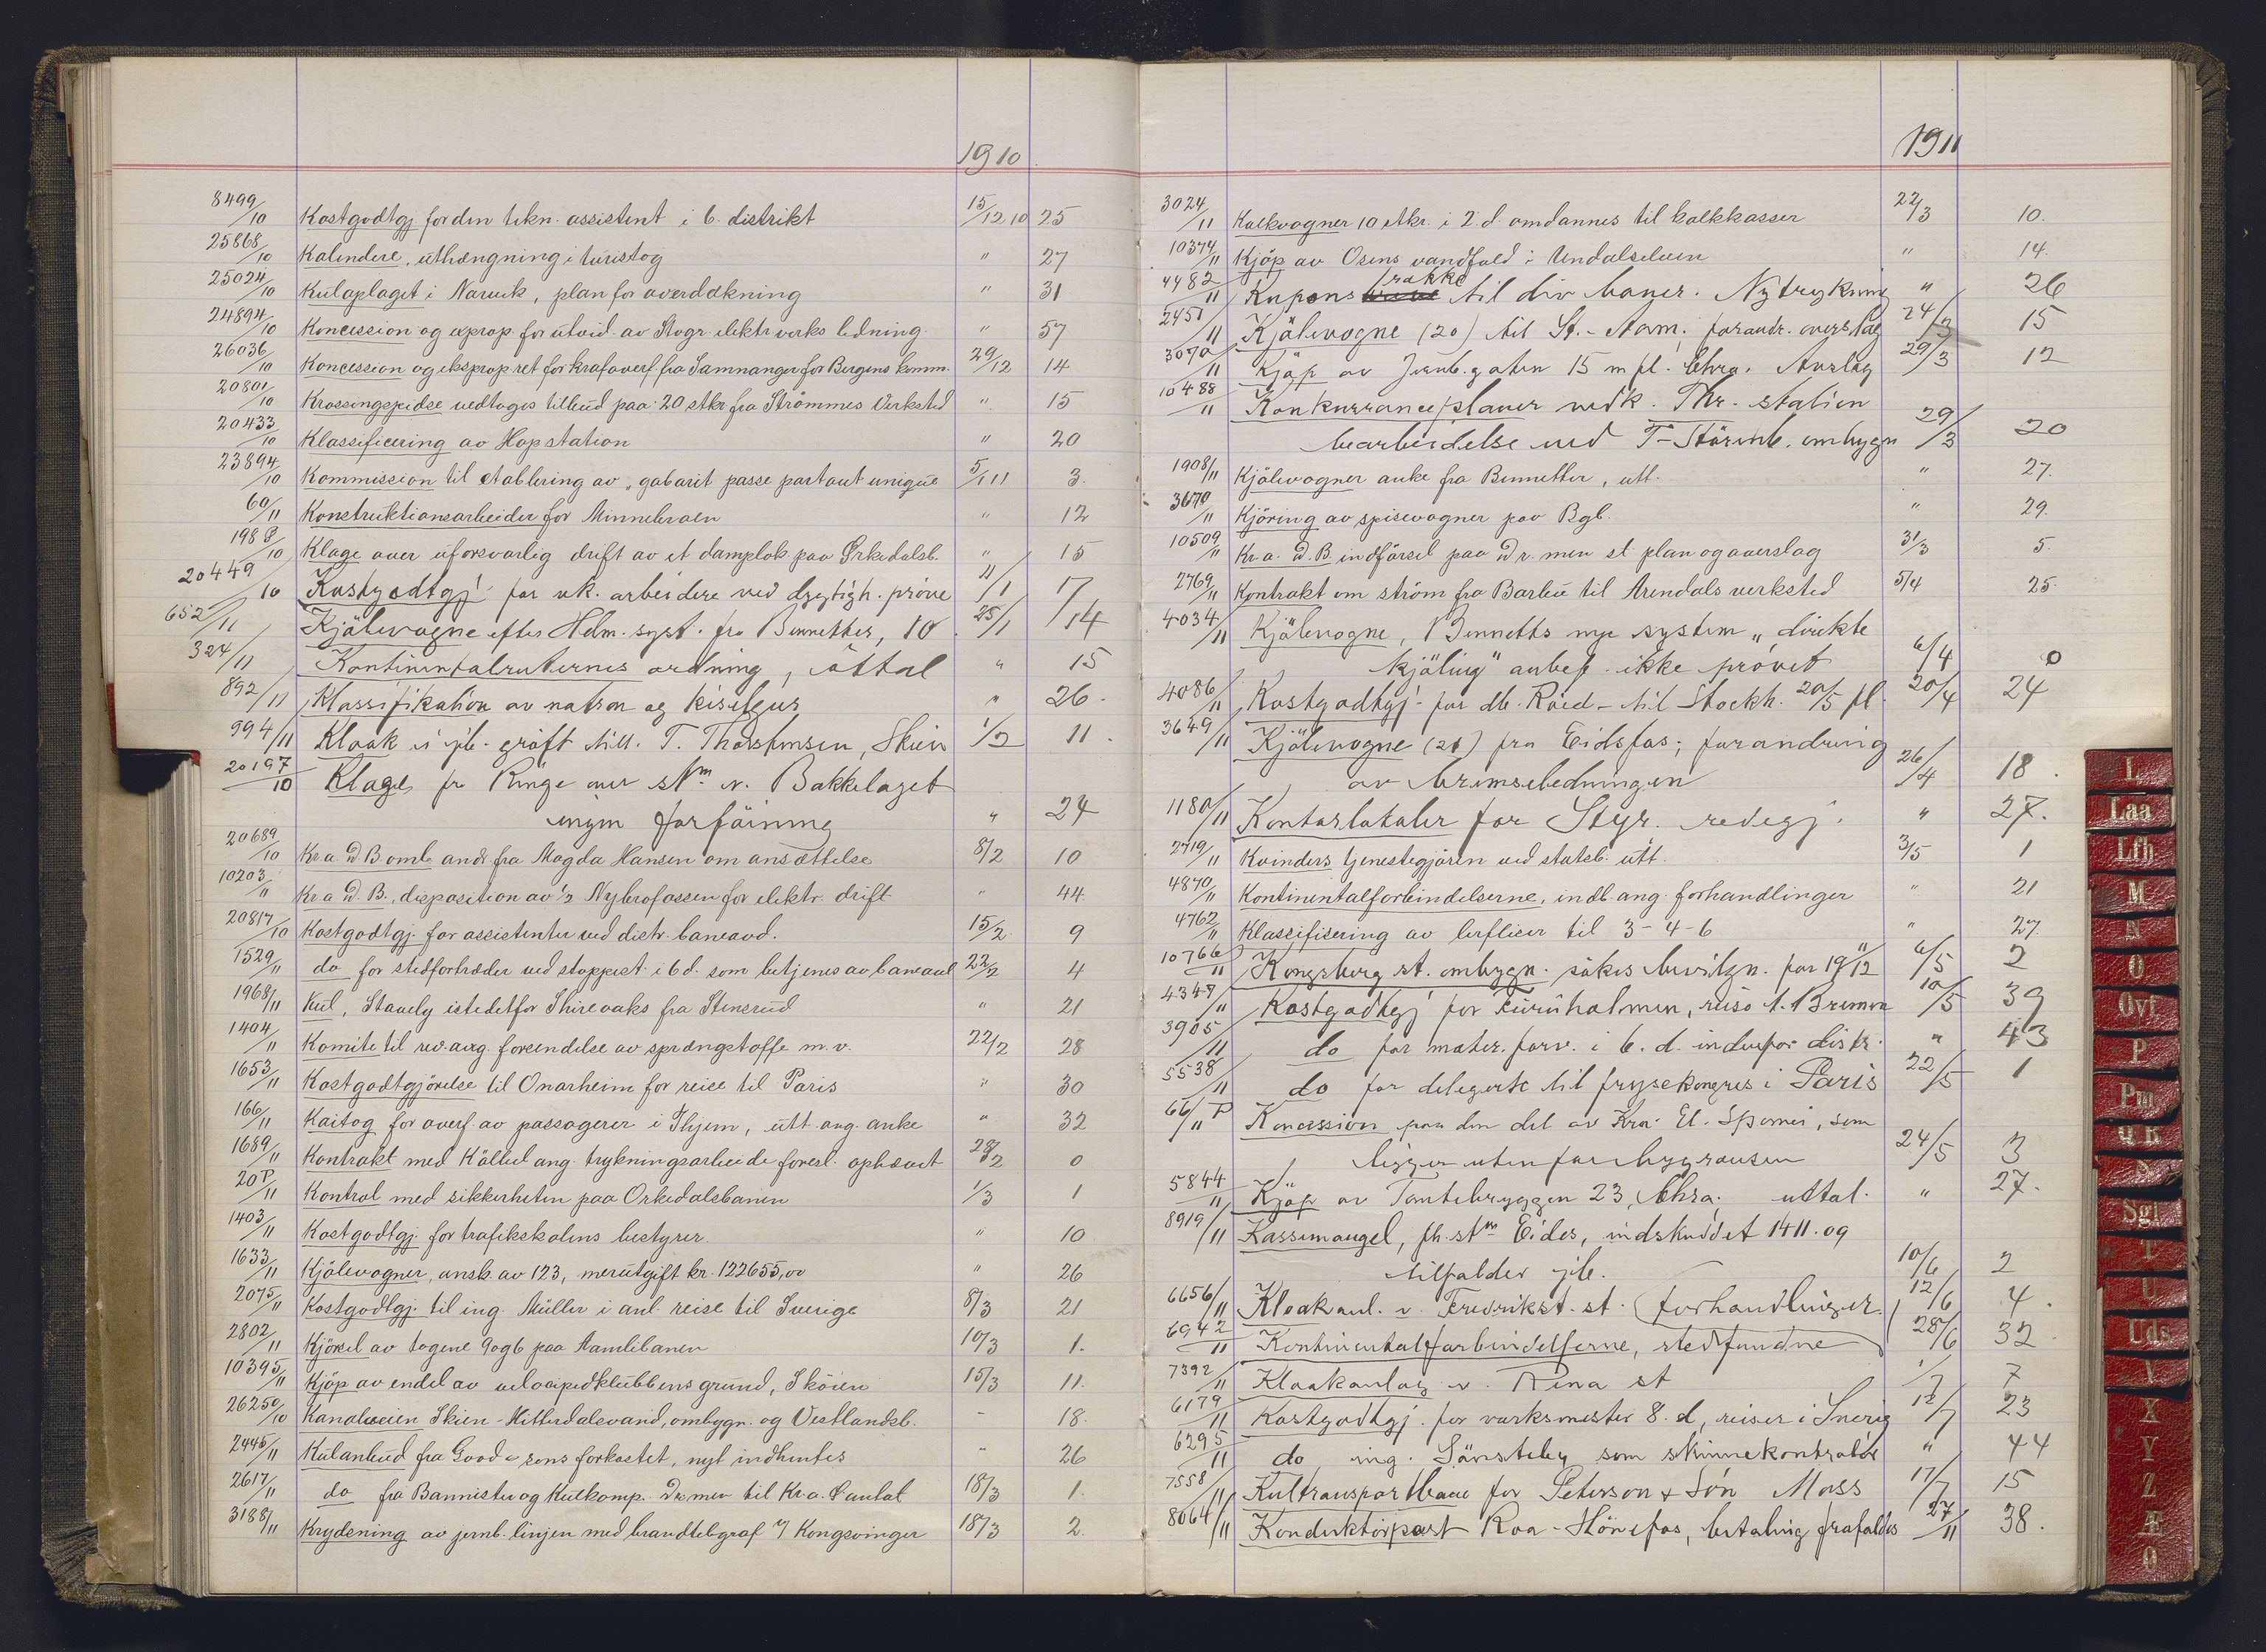 1910
8499/10 Kostgodtgj for den tekn. assistent i 6. distrikt 15/12 10 25
25868/10 Kalendere, uthængning i turisttog " 27
25024/10 Kulaplaget i Narvik, plan for overdækning " 31
24894/10 Koncession og exprop. for utvid. av Slogr. elektr. verks ledning. " 57
26036/10 Koncession og eksprop ret for krafoverf. fra Samnanger for Bergens komm. 29/12 14
20801/10 Krossingspidse vedtages tilbud paa 20 stkr fra Strömmes Verksted " 15
20433/10 Klassificering av Hop station " 20
23894/10 Kommission til etablering av „gabarit passe partout unique 5/1 11 3.
60/11 Konstruktionsarbeider for Minnebroen " 12
198 P/10 Klage over uforsvarlig drift av et damplok. paa Orkedalsb. " 15
20449/10 Kostgodtgj. for vk. arbeidere ved dygtigh. pröve 11/1 17
652/11 Kjölevogne efter Helm. syst. fra Bennetter, 10 25/1 14
324/11 Kontinentalruternes ordning, uttal " 15
892/11 Klassifikation av natron og kiselgur " 26.
994/11 Kloak i jb. gröft till. T. Thorstensen, Skien 1/2 11.
20197/10 Klage fr Ringe over stm v. Bakkelaget
ingen forföining " 24
20689/10 Kr.a D B omb. ands fra Magda Hansen om ansættelse 8/2 10
10203/11 Kr a D. B., disposition av 1/2 Nybrofossen for elektr. drift " 44
20817/10 Kostgodtgj. for assistenter ved distr. baneavd. 15/2 9
1529/11 do for stedfortræder ved stoppest. i 6 d. som betjenes av baneavd 22/2 4
1968/11 Kul, Stavely istedetfor Shireoaks fra Stensrud " 21
1404/11 Komite til rev. ang. forsendelse av sprængstoffe m. v. 22/2 28
1653/11 Kostgodtgjörelse til Onarheim for reise til Paris " 30
166/11 Kaitog for overf. av passagerer i Thjem, utt. ang. anke " 32
1689/11 Kontrakt med Källed ang. trykningsarbeide foresl. ophævet 28/2 0
20 P/11 Kontrol med sikkerheten paa Orkedalsbanen 1/3 1
1403/11 Kostgodtgj. for trafikskolens bestyrer. " 10
1633/11 Kjölevogner, ansk. av 123, merutgift kr. 122655,00 " 26
2075/11 Kostgodtgj. til ing. Müller i anl. reise til Sverige 8/3 21
2802/11 Kjörsel av togene 9 og 6 paa Hamlebanen 10/3 1.
10395/11 Kjöp av endel av velocipedklubbens grund, Sköien 15/3 11.
26250/10 Kanalveien Skien - Hitterdalsvand, ombygn. og Vestlandsb. - 18.
2445/11 Kulanbud fra Good & sons forkastet, nyt indhentes " 26
2617/11 do fra Bannister og Kulkomp. Drmen til Kr.a. D antat 18/3 1.
3188/11 Krydsning av jernb. linjen med brandtelegraf v/ Kongsvinger 18/3 2.
1911
3024/11 Kalkvogner 10 stkr. i 2 d. omdannes til kalkkasser 22/3 10.
10374/11 Kjöp av Osens vandfald i Undalselven " 14.
4482/11 Kupons række til div baner. Nytrykning " 26
2451/11 Kjölevogne (20) til St.-Aam; forandr. overslag 24/3 15
3070/11 Kjöp av Jernb. gaten 15 m fl. Chra. Avslag 29/3 12
10488/11 Konkurranceplaner vedk. Thr. station
bearbeidelse ved T-Störenb. ombygn 29/3 20
1908/11 Kjölevogner anke fra Bennetter, utt. " 27.
3670/11 Kjöring av spisevogner paa Bgb. " 29.
10509/11 Kr.a. D. B. indförsel paa Dr.men st. plan og overslag 31/3 5.
2769/11 Kontrakt om ström fra Barbu til Arendals verksted 5/4 25.
4034/11 Kjölevogne, Bennetts nye system „direkte
kjöling" anbef. ikke prövet 6/4 0
4086/11 Kostgodtgj. for db. Roed - til Stockh. 20/5 fl. 20/4 24
3649/11 Kjölevogne (20) fra Eidsfos; forandring
av bremseledningen 26/4 18.
1180/11 Kontorlokaler for Styr. redegj. " 27.
2719/11 Kvinders tjenestegjören ved statsb. utt. 3/5 1
4870/11 Kontinentalforbindelserne, indb. ang. forhandlinger " 21
4762/11 Klassifisering av lerfliser til 3-4-6 " 27.
10766/11 Kongsberg st. ombygn. sökes bevilgn. for 19 11/12 6/5 2
4347/11 Kostgodtgj for Furuholmen, reise t. Bremen 10/5 39
3905/11 do for mater. forv. i 6. d. indenfor distr. " 43
5538/11 do for delegerte til frysekongres i Paris 22/5 1
66/11 P Koncession paa den del av Kra. El. Sporvei, som
ligger utenfor bygrænsen 24/5 3
5844/11 Kjöp av Tomtebryggen 23, Chra; uttal. " 27.
8919/11 Kassemangel, fh. stm Eides, indskuddet 1411.09
tilfalder jb. 10/6 2
6656/11 Kloakanl. v. Fredrikst. st. (forhandlinger. 12/6 4.
6942/11 Kontinentalforbindelserne, stedfundne 28/6 32
7392/11 Kloakanlæg v. Rena st 1/7 7
6179/11 Kostgodtgj. for værksmester 8. d, reiser i Sverig 12/7 23
6295/11 do ing. Sönsteby som skinnekontrolör " 44
7558/11 Kultransportbane for Peterson & Sön Moss 17/7 15
8064/11 Konduktörpost Roa - Hönefos, betaling frafaldes 27/11 38.
L
Laa
Lfh
M
N
O
Ovf
P
Pm
Q R
S
Sgl
T
U
Uds
V
X
Y
Z
Æ
Ø